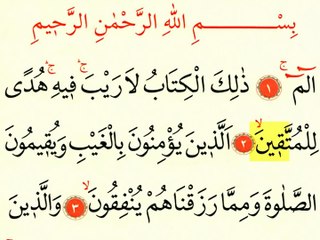 بِسْمِ اللهِ الرَّحْمٰنِ الرَّحِيمِ
الٓمٓ ۚ ١ ذٰلِكَ الْكِتَابُ لَا رَيْبَ ۚ فِيهِ ۚ هُدًى
لِلْمُتَّقِينَ ۙ ٢ اَلَّذِينَ يُؤْمِنُونَ بِالْغَيْبِ وَيُقِيمُونَ
الصَّلٰوةَ وَمِمَّا رَزَقْنَاهُمْ يُنْفِقُونَ ۙ ٣ وَالَّذِينَ